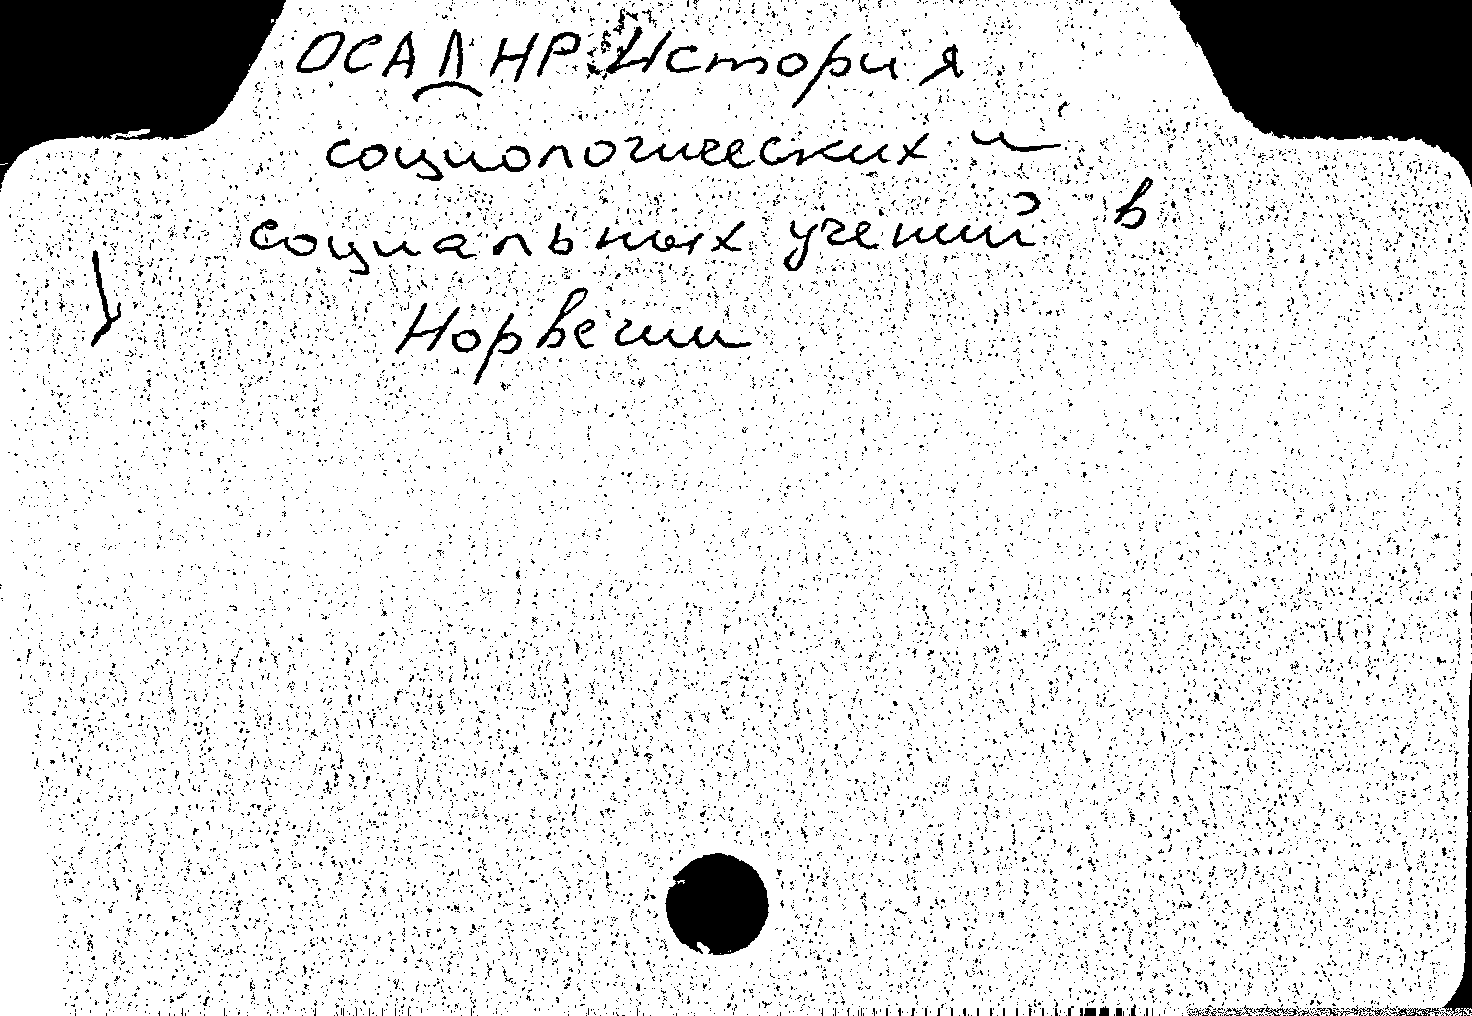 ОСА Л НР. История
социологических и
социальных учений в
Норвегии